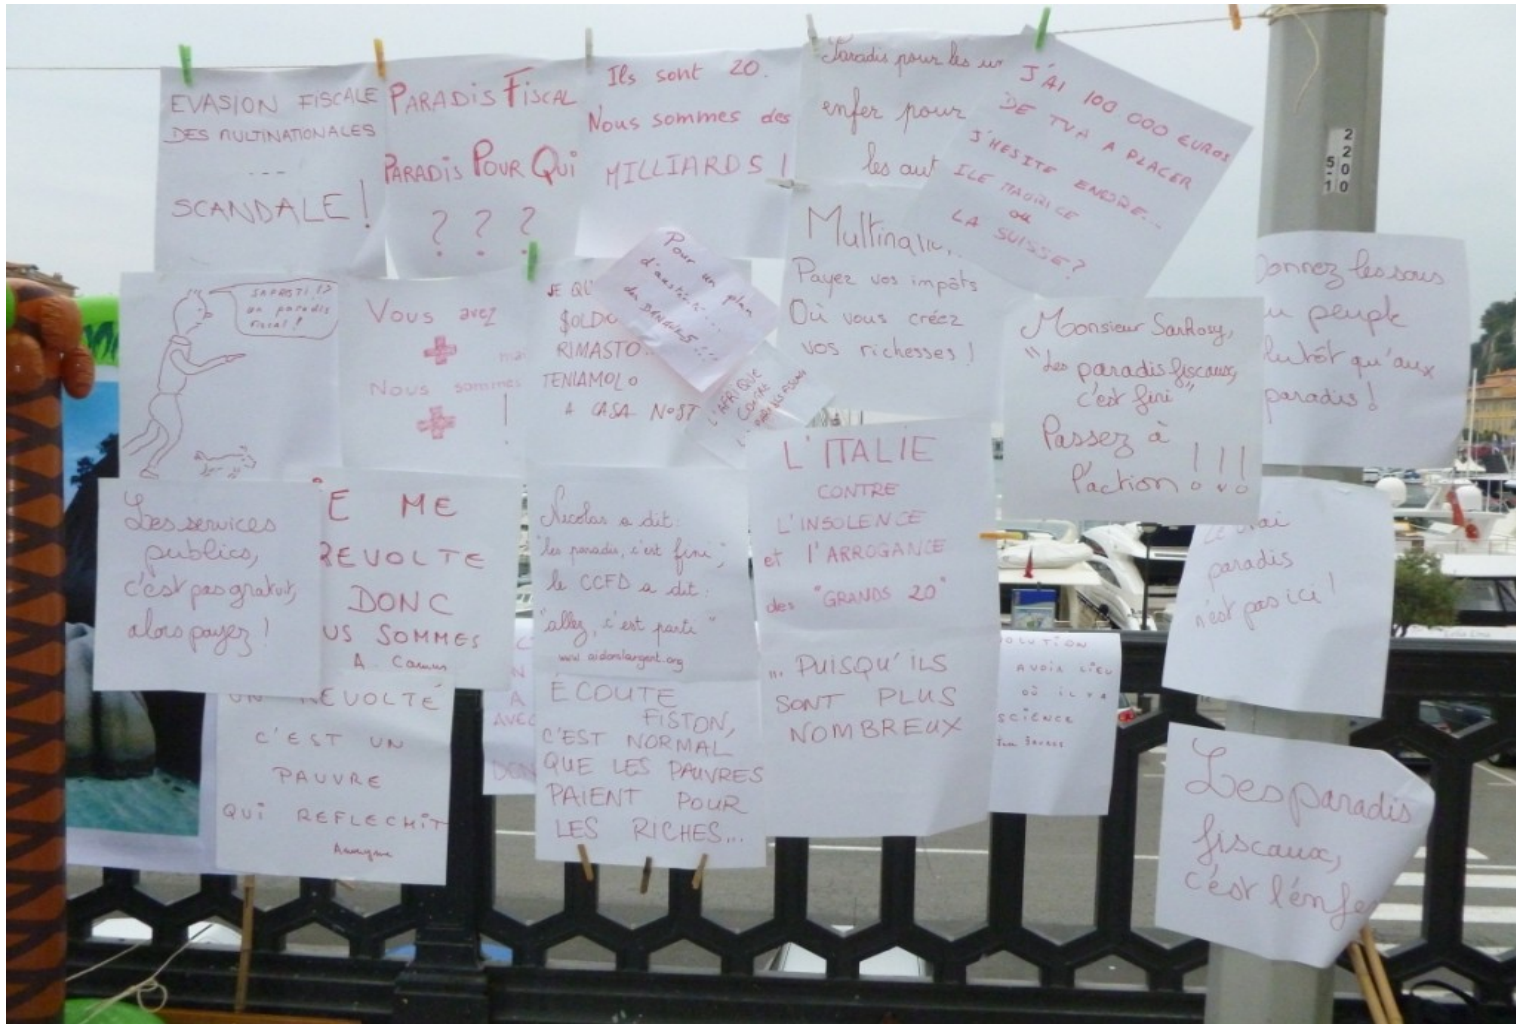 EVASION FISCALE
DES MULTINATIONALES
---
SCANDALE !
PARADIS FISCAL
PARADIS POUR QUI
? ? ?
Ils sont 20.
Nous sommes des
MILLIARDS !
Paradis pour les
enfer pour
les
J'AI 100 000 EUROS
DE TVA A PLACER
J'HESITE ENCORE...
ILE MAURICE
ou
LA SUISSE ?
2200
5-1
SAPRISTI !?
un paradis
fiscal !
Vous avez
mai
Nous sommes
!
SE QU
SOLDO
RIMASTO
TENIAMOLO
A CASA NOST
Pour un plan
d'austérité...
des BANQUES...
L'AFRIQUE
Payez vos impôts
Où vous créez
vos richesses !
Monsieur Sarkozy,
"Les paradis fiscaux,
c'est fini"
Passez à
l'action !!!
Donnez les sous
peuple
plutôt qu'aux
paradis !
Les services
publics,
c'est pas gratuit,
alors payez !
JE ME
REVOLTE
DONC
US SOMMES
A. Camus
Nicolas a dit :
"les paradis, c'est fini",
le CCFD a dit :
"allez, c'est parti"
www.aidonslargent.org
L'ITALIE
CONTRE
L'INSOLENCE
et l'ARROGANCE
des "GRANDS 20"
... PUISQU'ILS
SONT PLUS
NOMBREUX
Le vrai
paradis
n'est pas ici !
UN REVOLTÉ
C'EST UN
PAUVRE
QUI REFLECHIT
AVEC
ÉCOUTE
FISTON,
C'EST NORMAL
QUE LES PAUVRES
PAIENT POUR
LES RICHES...
OLUTION
AVOIR LIEU
OÙ IL Y A
SCIENCE
Les paradis
fiscaux,
c'est l'enfe